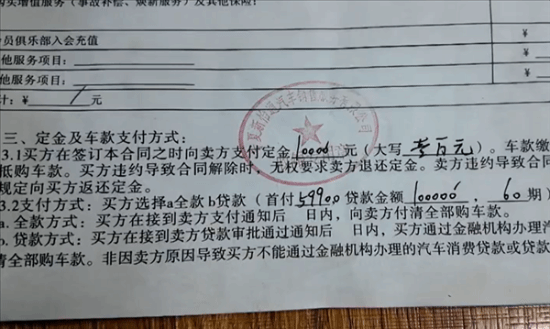 购买增值服务（事故补偿、焕新服务）及其他保险：
会员俱乐部入会充值 ¥
其他服务项目： ¥
其他服务项目： ¥
计：¥ / 元
三、定金及车款支付方式：
3.1买方在签订本合同之时向卖方支付定金 10000 元（大写 壹百元）。车款缴
抵购车款。买方违约导致合同解除时，无权要求卖方退还定金。卖方违约导
规定向买方返还定金。
3.2支付方式：买方选择a全款b贷款（首付 59900 贷款金额 100000 ，60 期）
a. 全款方式：买方在接到卖方支付通知后 日内，向卖方付清全部购车款。
b. 贷款方式：买方在接到卖方贷款审批通过通知后 日内，买方通过金融机构办理汽
清全部购车款。非因卖方原因导致买方不能通过金融机构办理的汽车消费贷款或贷款